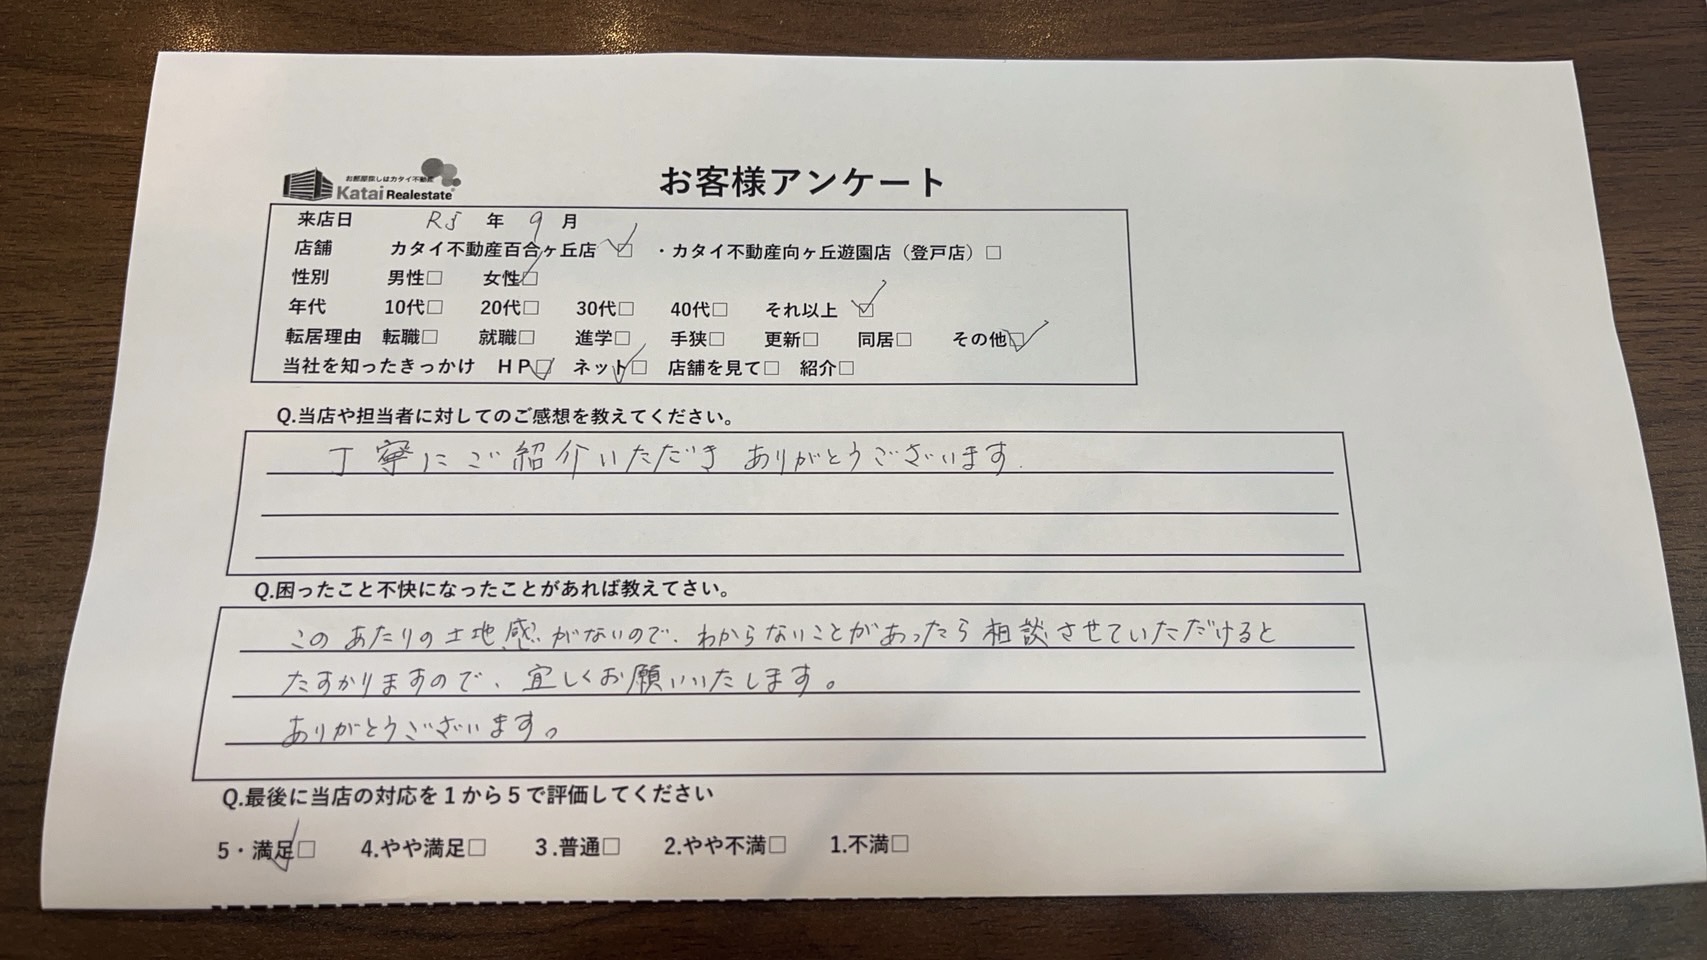 お部屋探しはカタイ不動産
Katai Realestate
お客様アンケート
来店日 R5 年 9 月
店舗 カタイ不動産百合ヶ丘店 ☑ ・カタイ不動産向ヶ丘遊園店（登戸店）□
性別 男性□ 女性☑
年代 10代□ 20代□ 30代□ 40代□ それ以上 ☑
転居理由 転職□ 就職□ 進学□ 手狭□ 更新□ 同居□ その他☑
当社を知ったきっかけ HP☑ ネット☑ 店舗を見て□ 紹介□
Q.当店や担当者に対してのご感想を教えてください。
丁寧にご紹介いただき ありがとうございます.
Q.困ったこと不快になったことがあれば教えてさい。
このあたりの土地感がないので、わからないことがあったら相談させていただけると
たすかりますので、宜しくお願いいたします。
ありがとうございます。
Q.最後に当店の対応を1から5で評価してください
5・満足☑ 4.やや満足□ 3.普通□ 2.やや不満□ 1.不満□